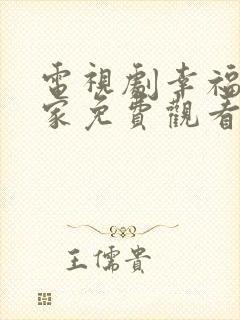 電視劇幸福
家免費觀看
王儒貴